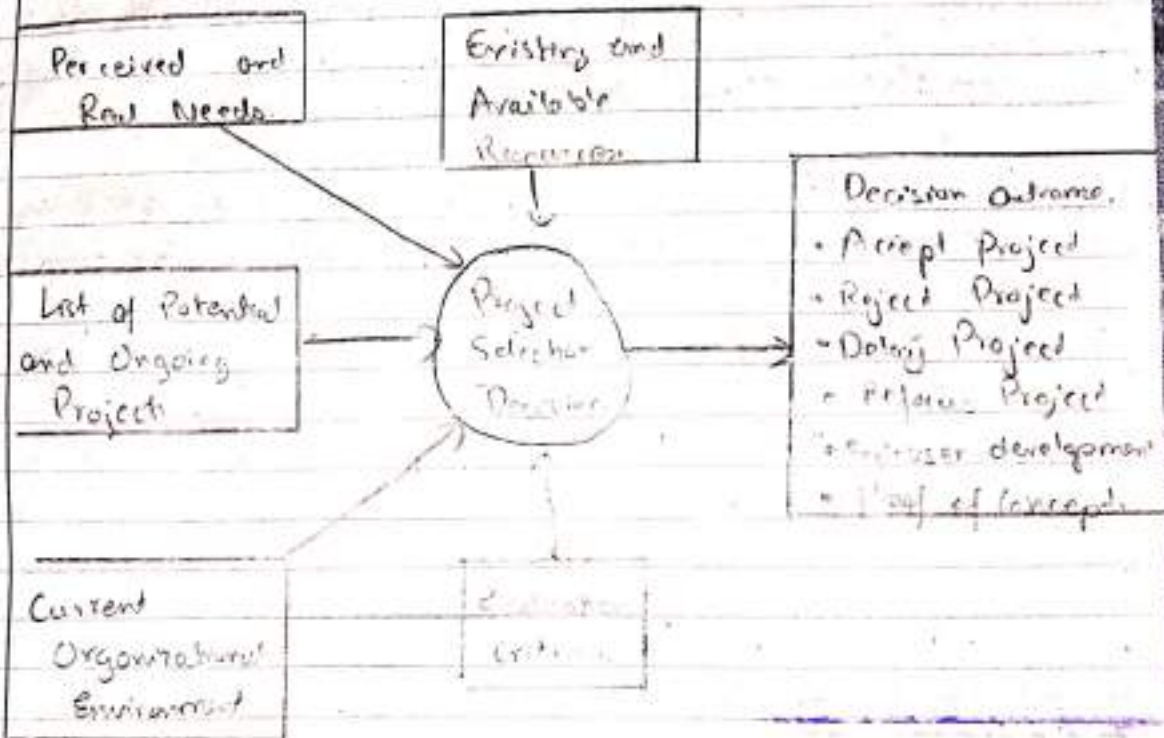 Perceived and
Real Needs
Existing and
Available
Resources
List of Potential
and Ongoing
Projects
Project
Selection
Decision
Decision Outcome.
• Accept Project
• Reject Project
• Delay Project
• Refocus Project
• End-user development
• Proof of Concept
Current
Organizational
Environment
Evaluation
Criteria